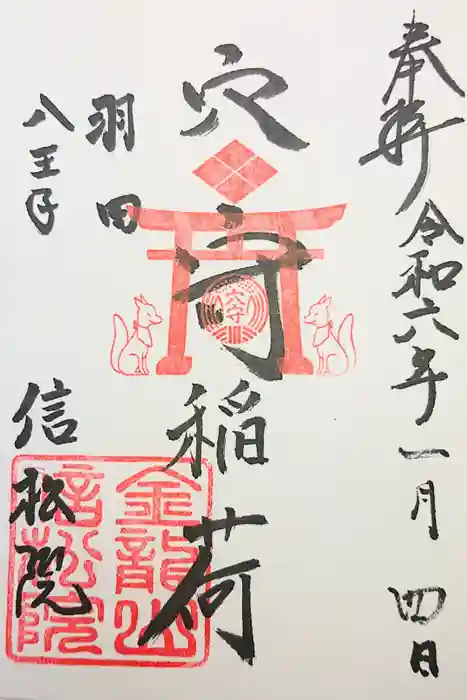 奉拝
令和六年一月四日
穴守稲荷
穴守
羽田
八王子
信松院
金龍山
信松院